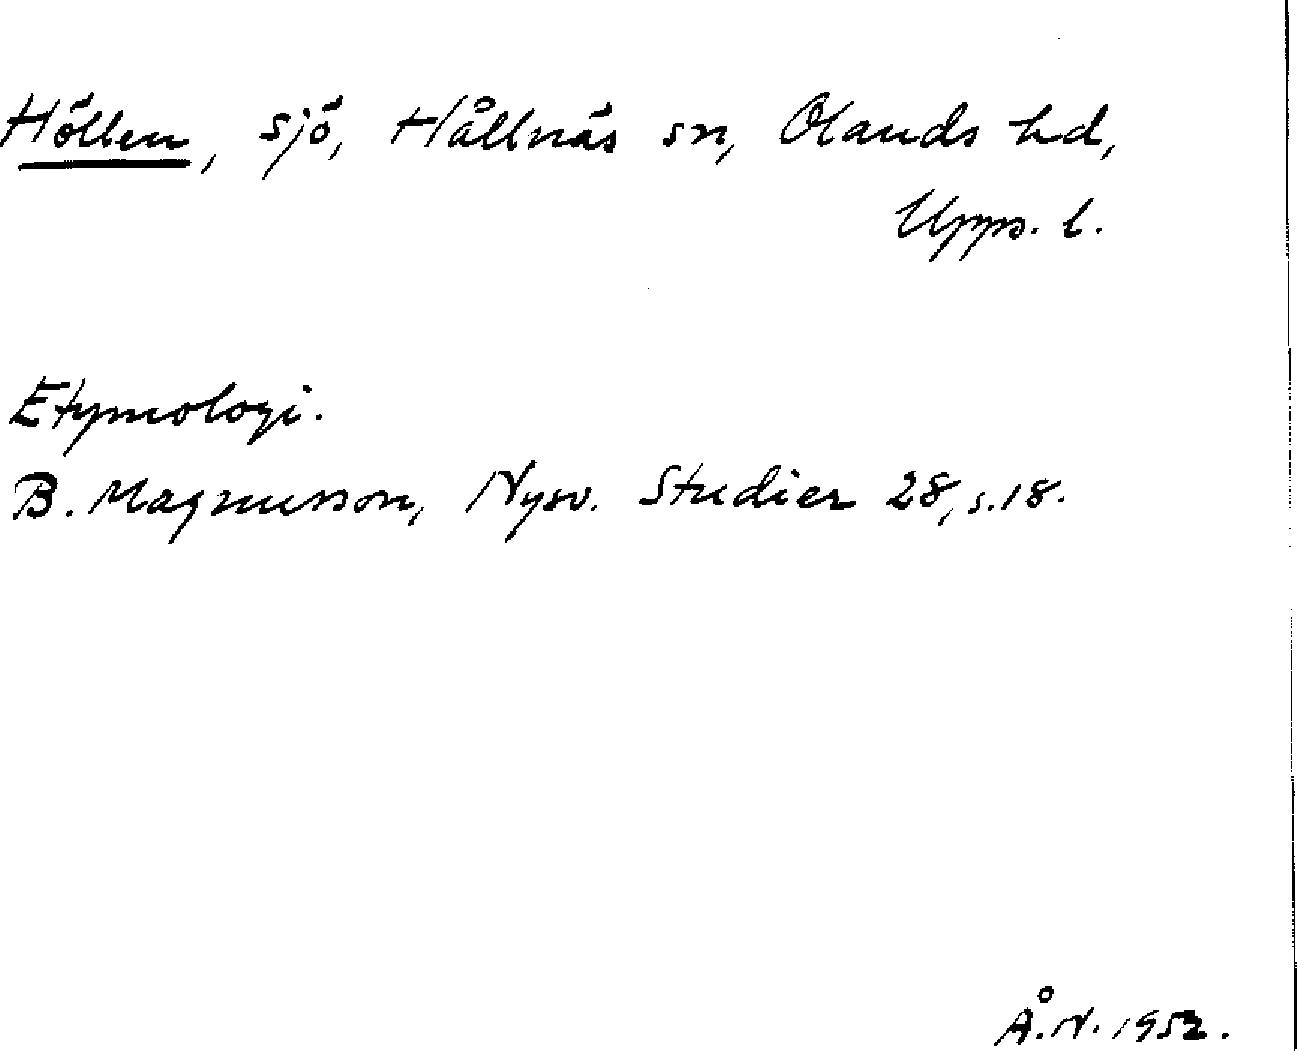 Höllen, sjö, Hållnäs sn, Olands hd,
Upps. l.
Etymologi.
B. Magnusson, Nysv. Studier 28, s. 18.
Å. N. 1952.